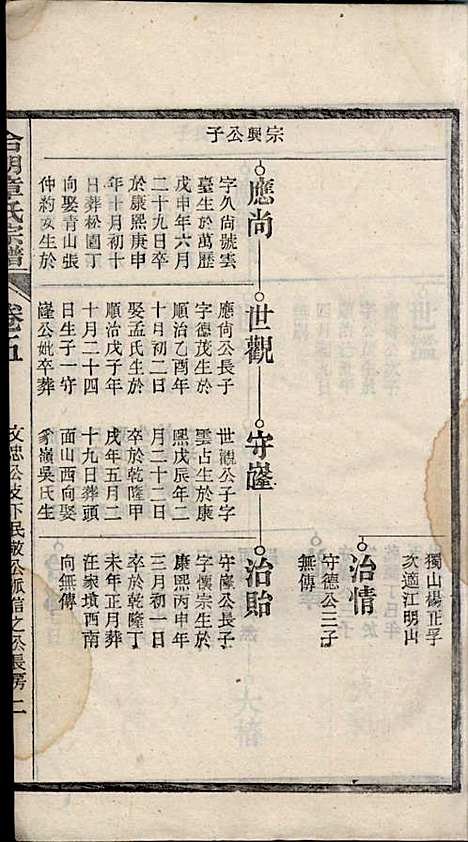 獨山楊正孚
次適江明山
治情
守德公三子
無傳
宗興公子
應尚
字久尚號雲
臺生於萬歷
戊申年六月
二十九日卒
於康熙庚申
年十月初十
日葬松園丁
向娶青山張
仲約女生於
世觀
應尚公長子
字德茂生於
順治乙酉年
十月初二日
娶孟氏生於
順治戊子年
十月二十四
日生子一守
㠖公妣卒葬
守㠖
世觀公子字
雲占生於康
熙戊辰年二
月二十二日
卒於乾隆甲
戌年五月二
十九日葬頭
面山西向娶
嶺吳氏生
治貽
守㠖公長子
字懷宗生於
康熙丙申年
三月初一日
卒於乾隆丁
未年正月葬
汪家墳西南
向無傳
合明章氏宗譜
卷五
文忠公支下民敏公派信之公長房
二